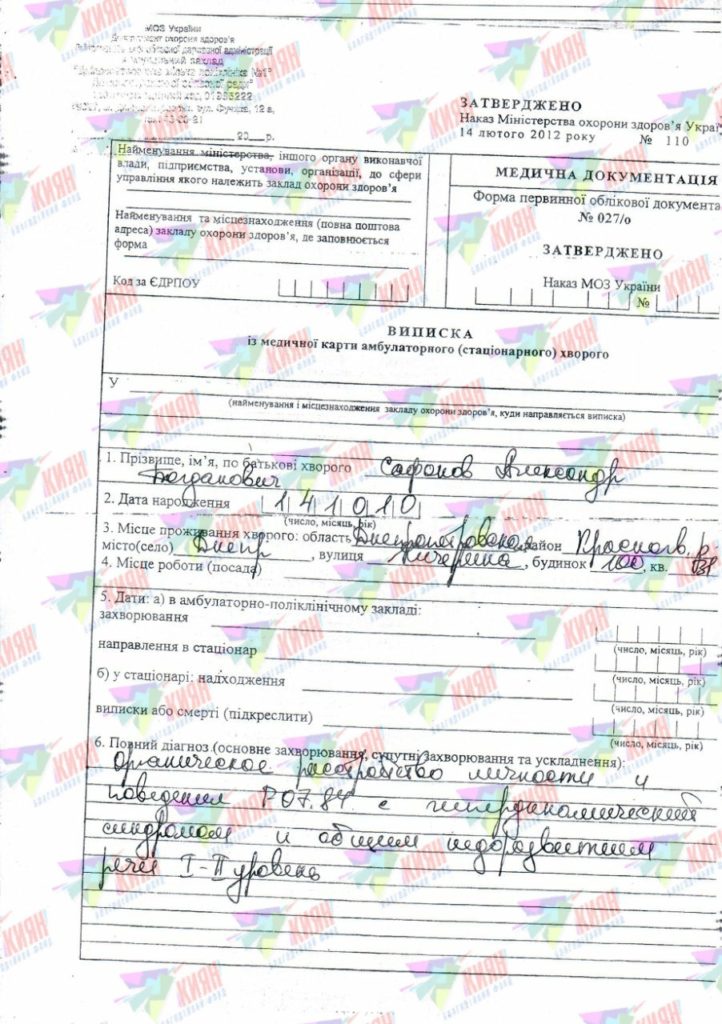 МОЗ України
Департамент охорони здоров'я
обласної державної адміністрації
заклад
вул.
12 в,
20__р.
ЗАТВЕРДЖЕНО
Наказ Міністерства охорони здоров'я Украї
14 лютого 2012 року № 110
Найменування міністерства, іншого органу виконавчої
влади, підприємства, установи, організації, до сфери
управління якого належить заклад охорони здоров'я
Найменування та місцезнаходження (повна поштова
адреса) закладу охорони здоров'я, де заповнюється
форма
Код за ЄДРПОУ
МЕДИЧНА ДОКУМЕНТАЦІЯ
Форма первинної облікової документа
№ 027/о
ЗАТВЕРДЖЕНО
Наказ МОЗ України
№
ВИПИСКА
із медичної карти амбулаторного (стаціонарного) хворого
У
(найменування і місцезнаходження закладу охорони здоров'я, куди направляється виписка)
1. Прізвище, ім'я, по батькові хворого Сафонов Александр
Богданович
2. Дата народження 141010
(число, місяць, рік)
3. Місце проживання хворого: область Днепропетровская район
місто(село) Днепр, вулиця, будинок 100, кв.
4. Місце роботи (посада)
5. Дати: а) в амбулаторно-поліклінічному закладі:
захворювання
(число, місяць, рік)
направлення в стаціонар
(число, місяць, рік)
б) у стаціонарі: надходження
(число, місяць, рік)
виписки або смерті (підкреслити)
(число, місяць, рік)
6. Повний діагноз (основне захворювання, супутні захворювання та ускладнення):
Органическое расстройство личности и
поведения F07.84 с гипердинамическим
синдромом и общим недоразвитием
речи I-II уровень
КИЯН
БЛАГОДІЙНИЙ ФОНД